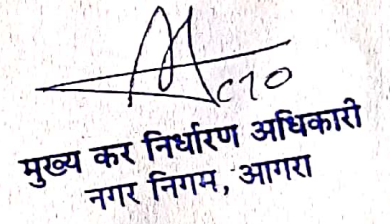 CTO
मुख्य कर निर्धारण अधिकारी
नगर निगम, आगरा